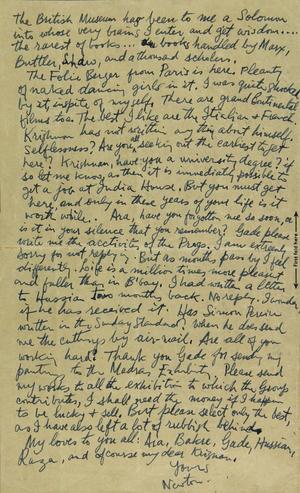 The British Museum has been to me a Solomon
into whose very brains I enter and get wisdom....
the rarest of books... books handled by Marx,
Buttler, Shaw, and a thousand scholers.
The Folie Berger from Paris is here. Pleanty
of naked dancing girls in it. I was quite shocked
by it, inspite of myself. There are grand Continental
films too. The best I like are the Italian & French.
Krishnan has not written any thin about himself.
Selflessness? Are you all seeking out the earliest to get
here? Krishnan, have you a university degree? if
so let me know, as then it is immediately possible to
get a job at India House. But you must get
here, and only in these years of your life is it
worth while. Ara, have you forgotten me so soon, or
is it in your silence that you remember? Gade please
write me the acctivity of the Progs. I am extreamly
sorry for not replying. But as months pass by I feel
differently. Life is a million times more pleasent
and fuller than in B'bay. I had written a letter
to Hussian months back. No reply. I wonder
if he has received it. Has Simon Pereira
written in the Sunday Standard? When he does send
me the cuttings by air-mail. Are all of you
working hard? Thank you Gade for sending my
painting to the Madras Exhibition. Please send
my works to all the exhibition to which the Group
contributes, I shall need the money if I happen
to be lucky & sell. But please select only the best,
as I have also left a lot of rubbish behind.
My loves to you all: Ara, Bakre, Gade, Hussian,
Raza, and of course my dear Krisnan.
Yours
Newton.
First fold here